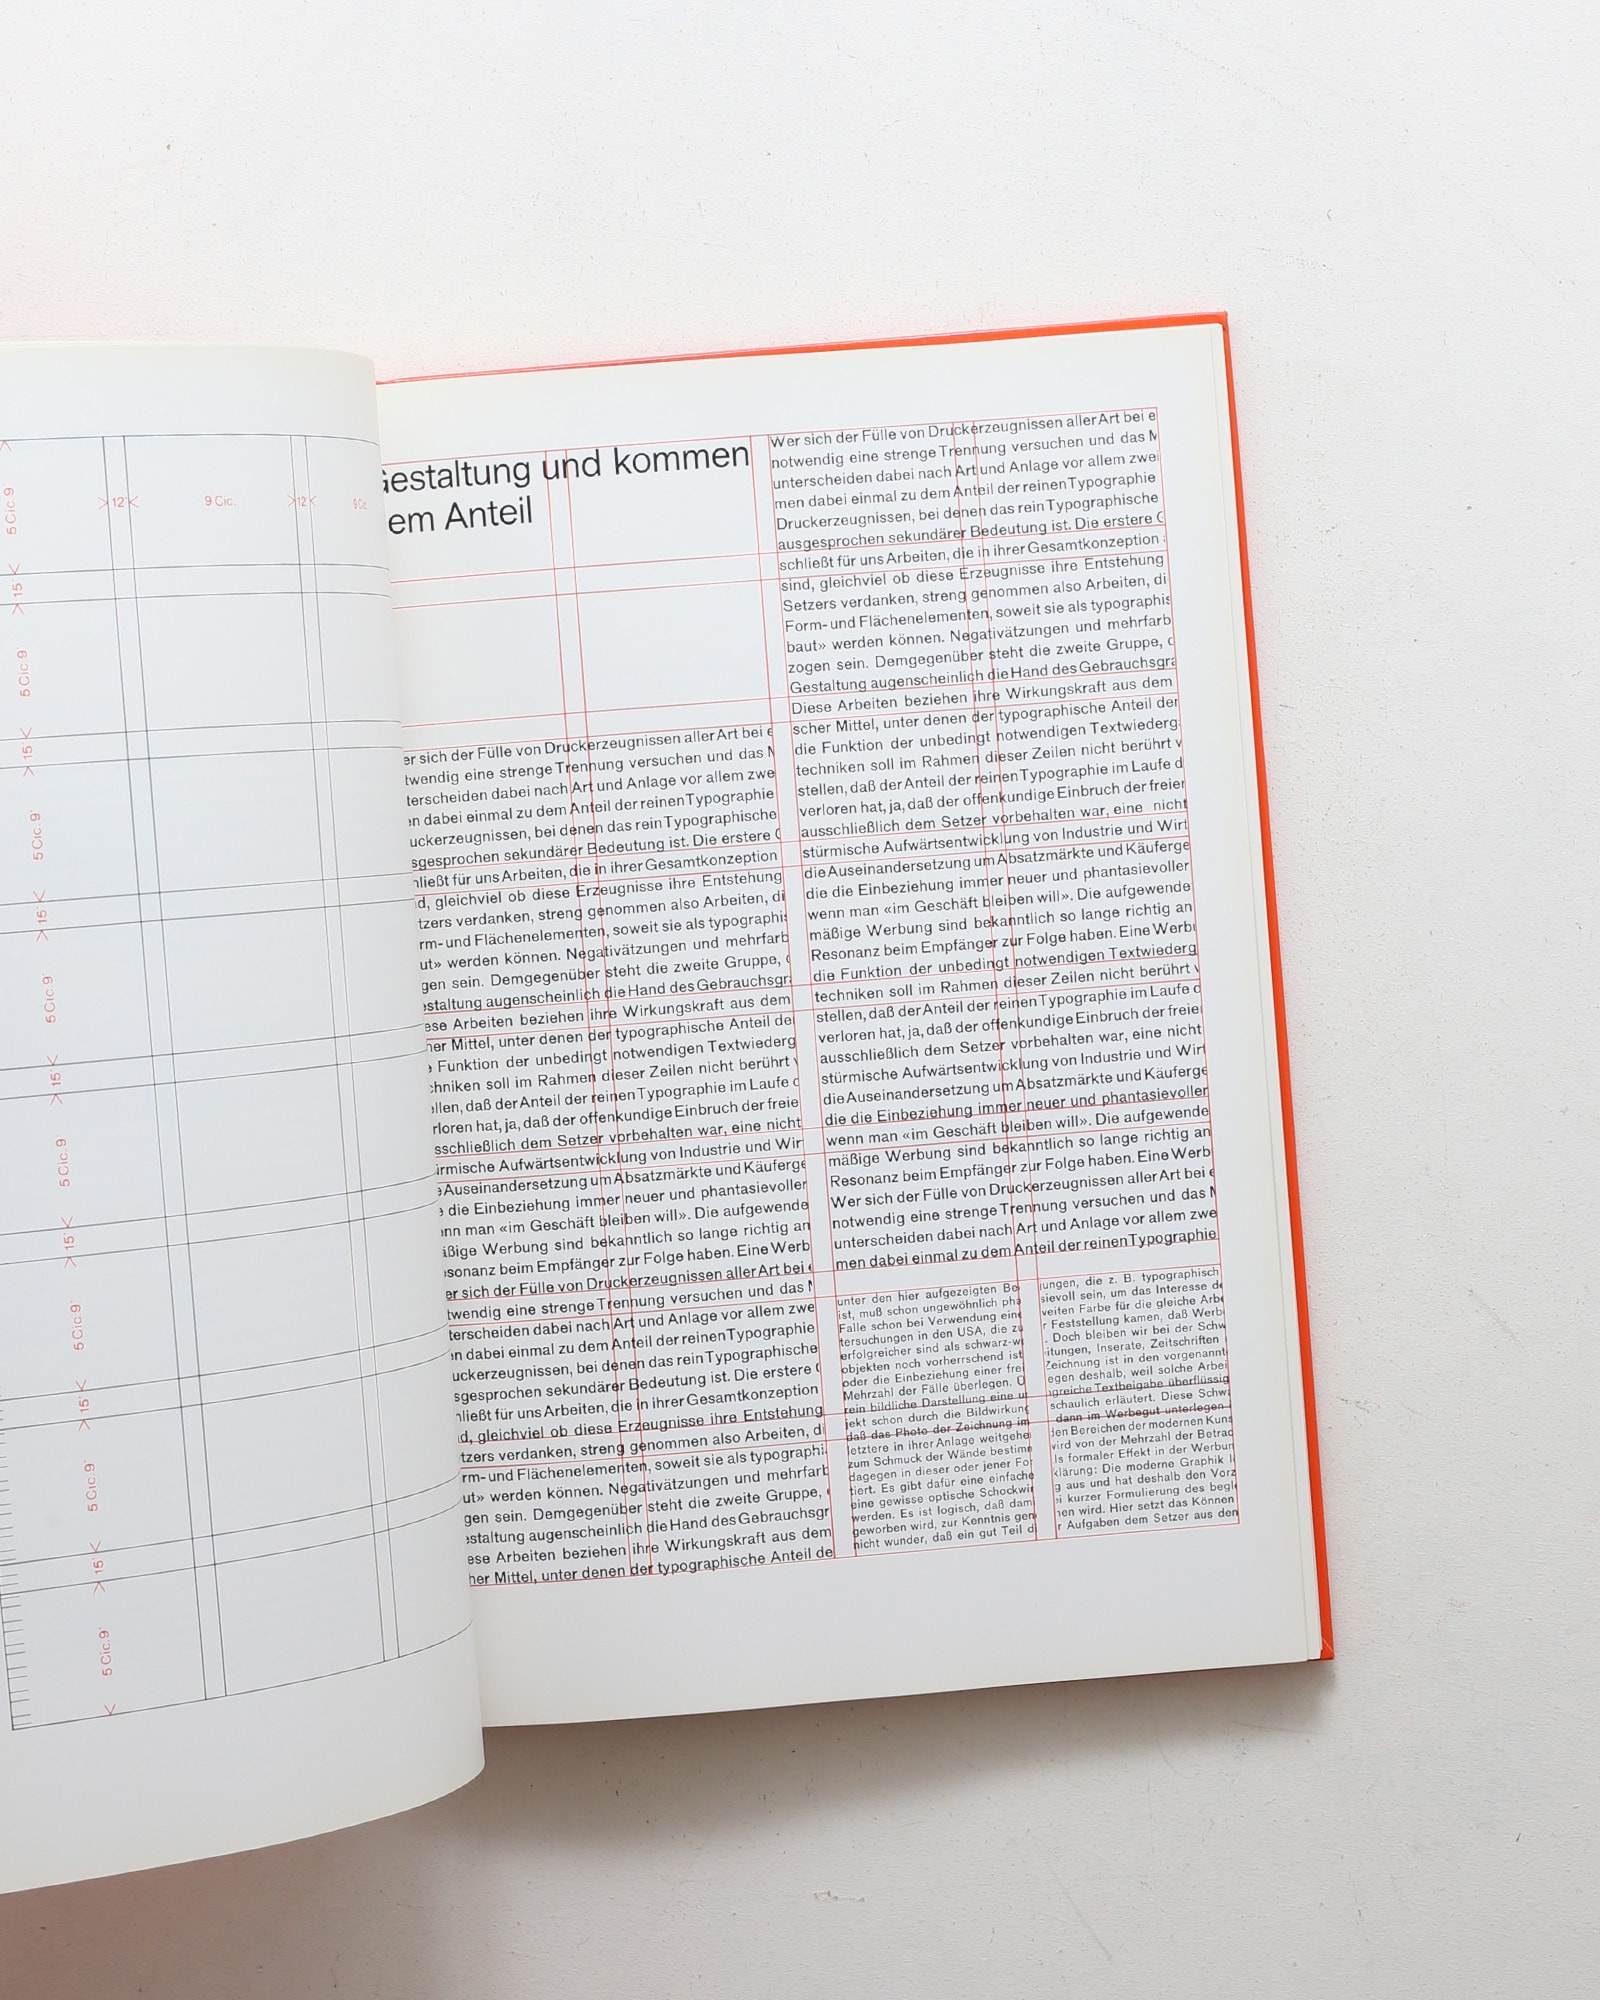 5 Cic. 9
>12<
9 Cic.
>12<
9 Cic
>15<
5 Cic. 9'
>15'<
5 Cic. 9'
>15'<
5 Cic. 9'
>15'<
5 Cic. 9'
>15'<
5 Cic. 9'
>15'<
5 Cic. 9'
>15'<
5 Cic. 9'
Gestaltung und kommen
em Anteil
er sich der Fülle von Druckerzeugnissen aller Art bei e
twendig eine strenge Trennung versuchen und das M
terscheiden dabei nach Art und Anlage vor allem zwe
n dabei einmal zu dem Anteil der reinen Typographie
uckerzeugnissen, bei denen das rein Typographische
sgesprochen sekundärer Bedeutung ist. Die erstere G
hließt für uns Arbeiten, die in ihrer Gesamtkonzeption
d, gleichviel ob diese Erzeugnisse ihre Entstehung
tzers verdanken, streng genommen also Arbeiten, di
rm- und Flächenelementen, soweit sie als typographis
ut» werden können. Negativätzungen und mehrfarb
gen sein. Demgegenüber steht die zweite Gruppe,
estaltung augenscheinlich die Hand des Gebrauchsgr
ese Arbeiten beziehen ihre Wirkungskraft aus dem
her Mittel, unter denen der typographische Anteil der
e Funktion der unbedingt notwendigen Textwiederg
chniken soll im Rahmen dieser Zeilen nicht berührt
ellen, daß der Anteil der reinen Typographie im Laufe d
rloren hat, ja, daß der offenkundige Einbruch der freie
sschließlich dem Setzer vorbehalten war, eine nicht
ürmische Aufwärtsentwicklung von Industrie und Wirt
e Auseinandersetzung um Absatzmärkte und Käuferge
e die Einbeziehung immer neuer und phantasievoller
nn man «im Geschäft bleiben will». Die aufgewende
äßige Werbung sind bekanntlich so lange richtig an
sonanz beim Empfänger zur Folge haben. Eine Werb
er sich der Fülle von Druckerzeugnissen aller Art bei
twendig eine strenge Trennung versuchen und das M
terscheiden dabei nach Art und Anlage vor allem zwe
n dabei einmal zu dem Anteil der reinen Typographie
uckerzeugnissen, bei denen das rein Typographische
sgesprochen sekundärer Bedeutung ist. Die erstere G
hließt für uns Arbeiten, die in ihrer Gesamtkonzeption
d, gleichviel ob diese Erzeugnisse ihre Entstehung
tzers verdanken, streng genommen also Arbeiten, di
rm- und Flächenelementen, soweit sie als typographi
ut» werden können. Negativätzungen und mehrfarb
gen sein. Demgegenüber steht die zweite Gruppe,
estaltung augenscheinlich die Hand des Gebrauchsgr
ese Arbeiten beziehen ihre Wirkungskraft aus dem
her Mittel, unter denen der typographische Anteil de
Wer sich der Fülle von Druckerzeugnissen aller Art bei e
notwendig eine strenge Trennung versuchen und das M
unterscheiden dabei nach Art und Anlage vor allem zwei
men dabei einmal zu dem Anteil der reinen Typographie
Druckerzeugnissen, bei denen das rein Typographische
ausgesprochen sekundärer Bedeutung ist. Die erstere G
schließt für uns Arbeiten, die in ihrer Gesamtkonzeption
sind, gleichviel ob diese Erzeugnisse ihre Entstehung
Setzers verdanken, streng genommen also Arbeiten, di
Form- und Flächenelementen, soweit sie als typographis
baut» werden können. Negativätzungen und mehrfarb
zogen sein. Demgegenüber steht die zweite Gruppe,
Gestaltung augenscheinlich die Hand des Gebrauchsgra
Diese Arbeiten beziehen ihre Wirkungskraft aus dem
scher Mittel, unter denen der typographische Anteil der
die Funktion der unbedingt notwendigen Textwiederg
techniken soll im Rahmen dieser Zeilen nicht berührt
stellen, daß der Anteil der reinen Typographie im Laufe d
verloren hat, ja, daß der offenkundige Einbruch der freier
ausschließlich dem Setzer vorbehalten war, eine nicht
stürmische Aufwärtsentwicklung von Industrie und Wirt
die Auseinandersetzung um Absatzmärkte und Käuferge
die die Einbeziehung immer neuer und phantasievoller
wenn man «im Geschäft bleiben will». Die aufgewende
mäßige Werbung sind bekanntlich so lange richtig an
Resonanz beim Empfänger zur Folge haben. Eine Werb
die Funktion der unbedingt notwendigen Textwiederg
techniken soll im Rahmen dieser Zeilen nicht berührt
stellen, daß der Anteil der reinen Typographie im Laufe d
verloren hat, ja, daß der offenkundige Einbruch der freier
ausschließlich dem Setzer vorbehalten war, eine nicht
stürmische Aufwärtsentwicklung von Industrie und Wirt
die Auseinandersetzung um Absatzmärkte und Käuferge
die die Einbeziehung immer neuer und phantasievoller
wenn man «im Geschäft bleiben will». Die aufgewende
mäßige Werbung sind bekanntlich so lange richtig an
Resonanz beim Empfänger zur Folge haben. Eine Werb
Wer sich der Fülle von Druckerzeugnissen aller Art bei e
notwendig eine strenge Trennung versuchen und das M
unterscheiden dabei nach Art und Anlage vor allem zwe
men dabei einmal zu dem Anteil der reinen Typographie
unter den hier aufgezeigten Be
ist, muß schon ungewöhnlich pha
Falle schon bei Verwendung eine
tersuchungen in den USA, die zu
erfolgreicher sind als schwarz-w
objekten noch vorherrschend ist
oder die Einbeziehung einer frei
Mehrzahl der Fälle überlegen. D
rein bildliche Darstellung eine u
jekt schon durch die Bildwirkung
daß das Photo der Zeichnung im
letztere in ihrer Anlage weitgehe
zum Schmuck der Wände bestimm
dagegen in dieser oder jener Fo
tiert. Es gibt dafür eine einfache
eine gewisse optische Schockwi
werden. Es ist logisch, daß dam
geworben wird, zur Kenntnis gen
nicht wunder, daß ein gut Teil d
ungen, die z. B. typographisch
sievoll sein, um das Interesse de
veiten Farbe für die gleiche Arbe
r Feststellung kamen, daß Werb
. Doch bleiben wir bei der Schw
itungen, Inserate, Zeitschriften
Zeichnung ist in den vorgenannt
egen deshalb, weil solche Arbei
greiche Textbeigabe überflüssig
schaulich erläutert. Diese Schw
dann im Werbegut unterlegen
den Bereichen der modernen Kuns
wird von der Mehrzahl der Betrac
ls formaler Effekt in der Werbun
klärung: Die moderne Graphik l
g aus und hat deshalb den Vorz
ei kurzer Formulierung des begl
nen wird. Hier setzt das Können
r Aufgaben dem Setzer aus den